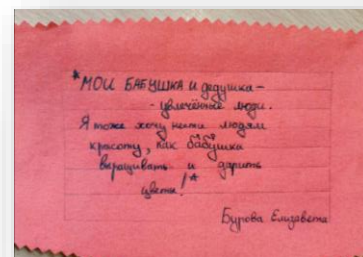 *МОИ БАБУШКА и дедушка –
- увлечённые люди.
Я тоже хочу нести людям
красоту, как бабушка
выращивать и дарить
цветы!*
Бурова Елизавета